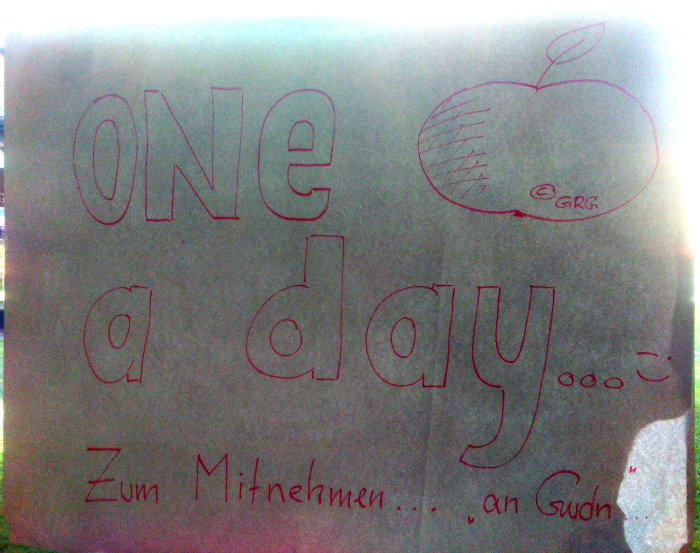 ONE
© GRG
a day...
Zum Mitnehmen... „an Guadn"...